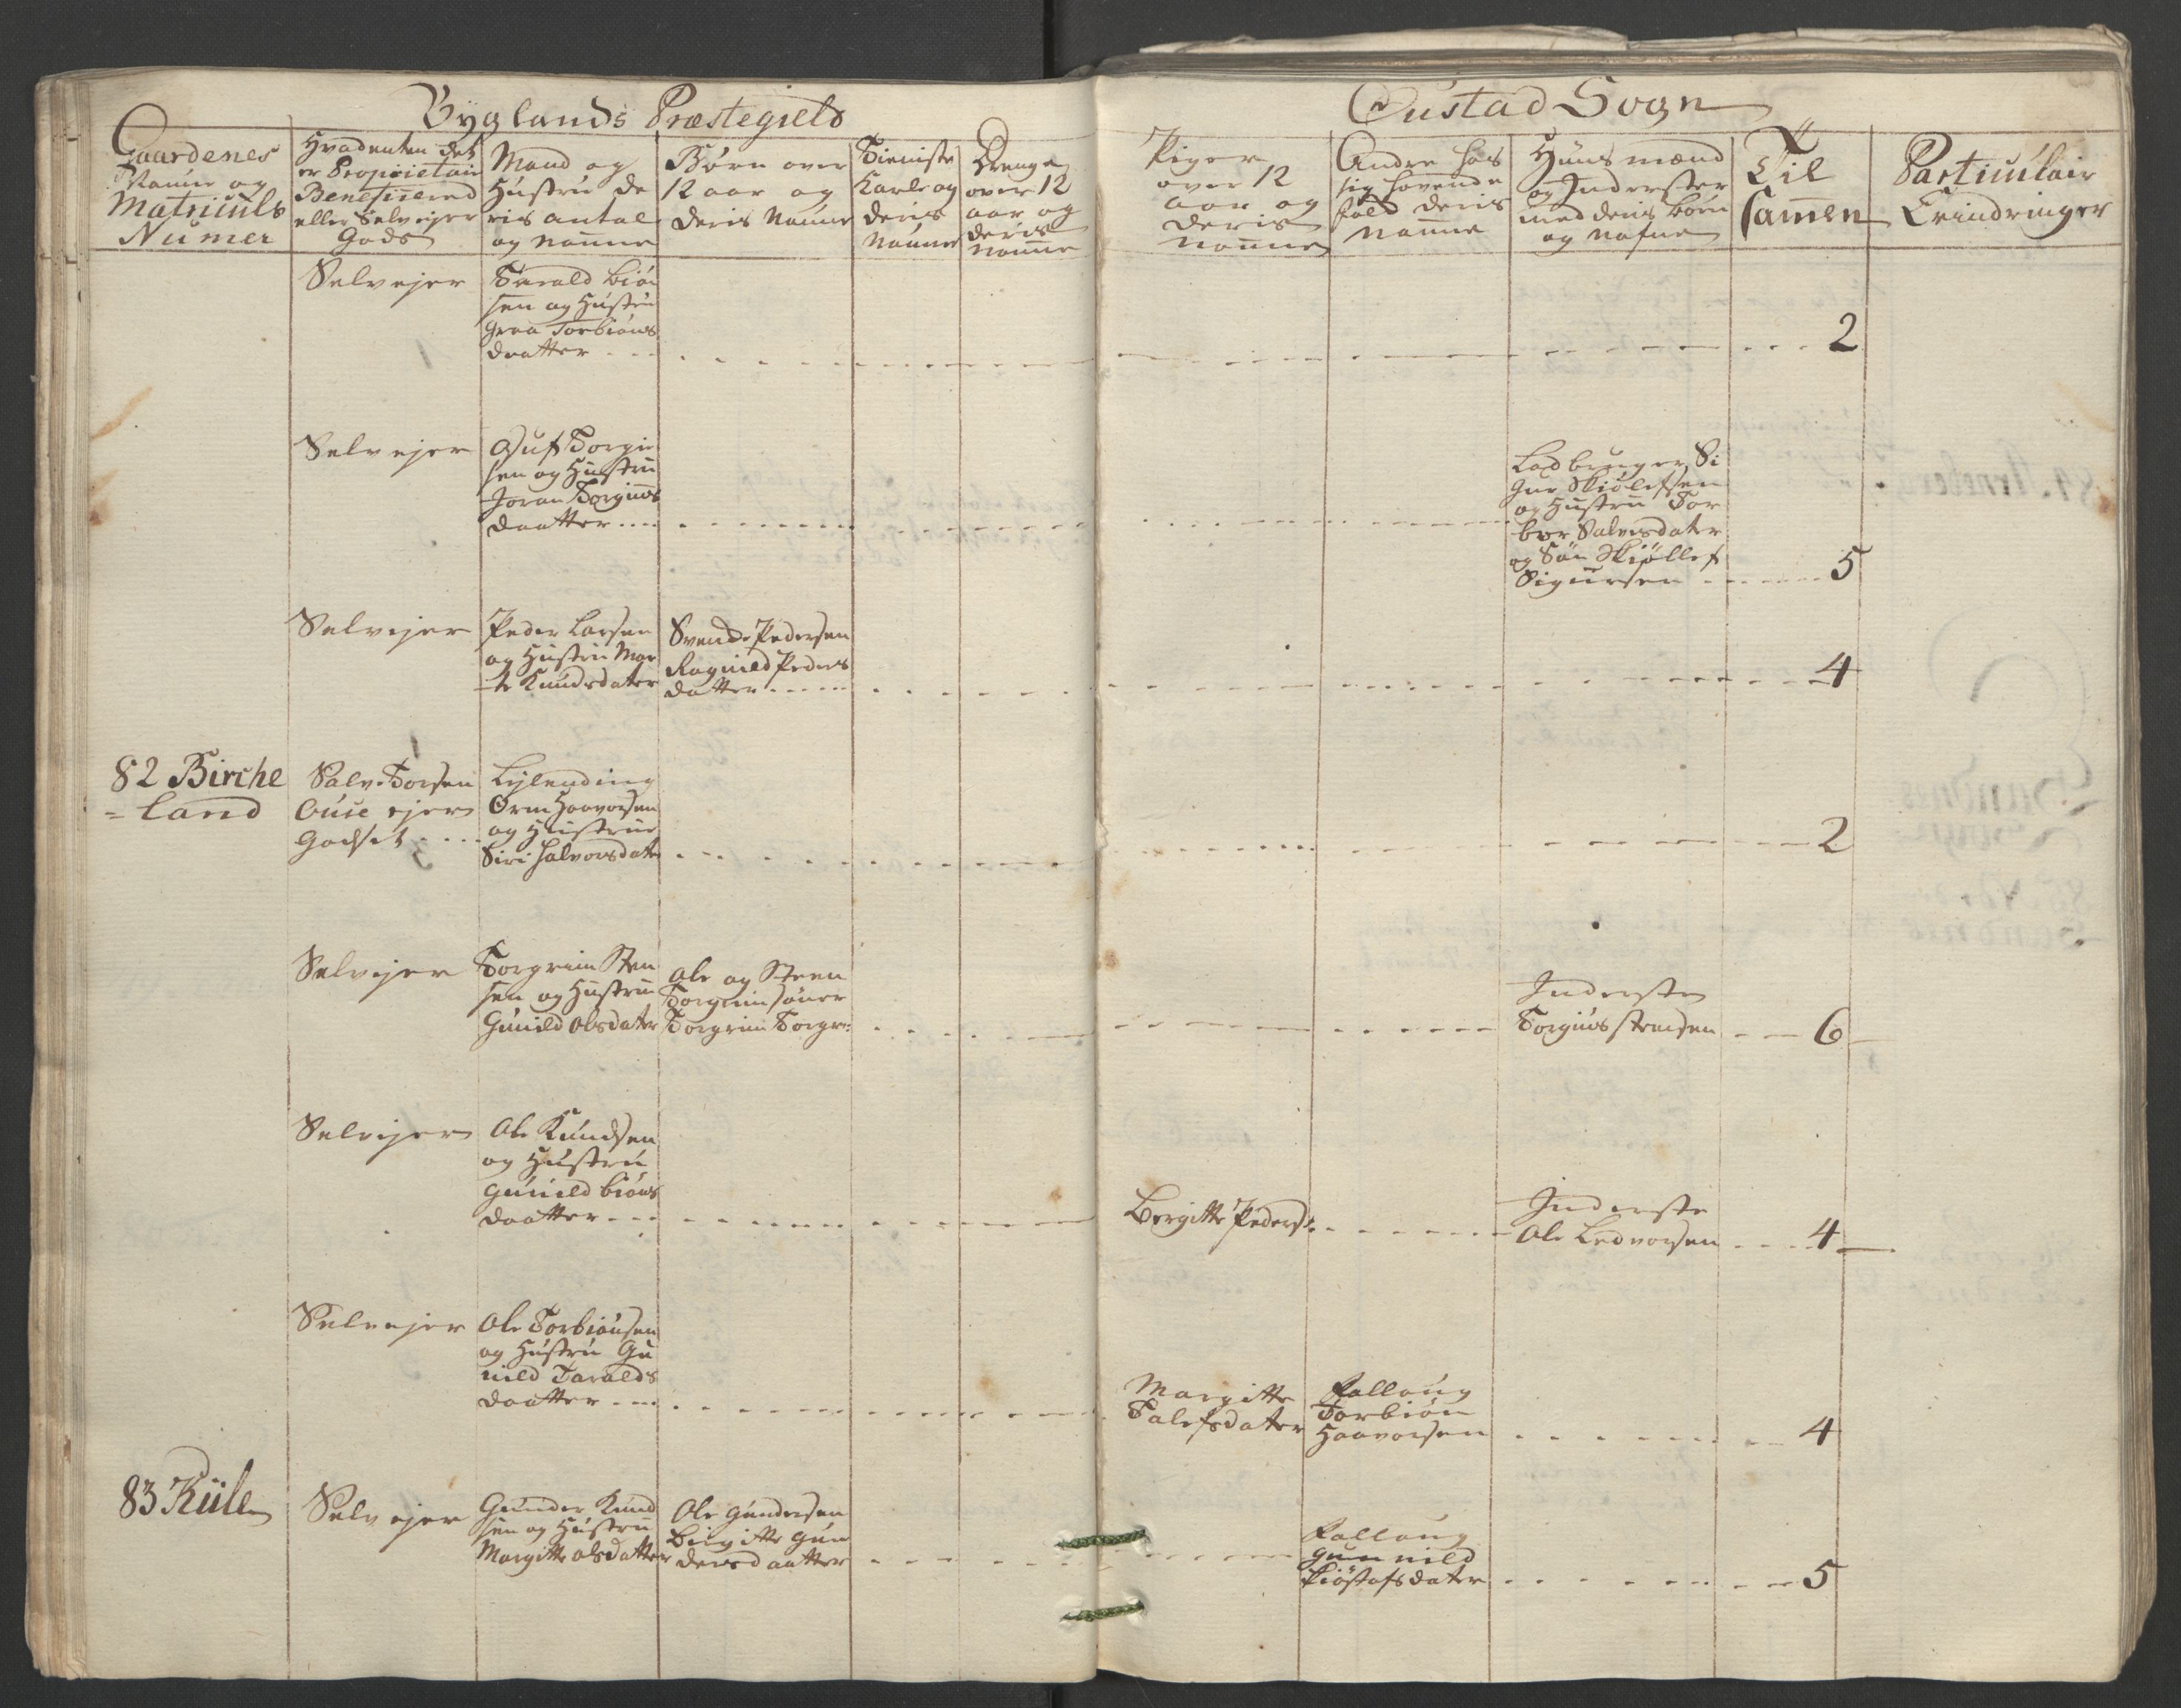 Byglands Præstegield
Gaardenes
Navne og
Matriculs
Numer
Hvadenten det
er Proprietair
Beneficered
eller Selvejer
Gods
Mand og
Hustru de
ris antal
og Nafne
Børn over
12 aar og
deris Nafne
Tieniste
Karle og
deris
Nafne
Drenge
over 12
aar og
deris
Nafne
Oustad Sogn
Piger
over 12
aar og
deris
Nafne
Andre hos
sig havende
folk deris
Nafne
Huusmænd
og Inderster
med deris børn
og Nafne
Til
samen
Particulair
Erindringer
Selvejer
Tarald Biøn
sen og Hustru
Torbiøns
daatter
2
Selvejer
Torgu
sen og Hustru
Joran Torgius
daatter
Ladbruger Si
gur Skiølefsen
og Hustru Tor
bor Salvesdater
og Søn Skiøllef
Sigursen
5
Selvejer
Peder Larsen
og Hustru Mar
te Knudsdater
Svend Pedersen
Ragnild Peders
datter
4
82 Birche
=land
Salve Torsen
Ouse ejer
Godset
Lejlending
Orm Haavorsen
og Hustrue
Siri Halvorsdatr
2
Selvejer
Torgrim Sten
sen og Hustru
Gunild Olsdater
Ole og Steen
Torgrimsøner
Torgrim Torgr:
Inderste
Torgius Stensen
6
Selvejer
Ole Knudsen
og Hustru
Gunild Biøns
daatter
Bergitte Pedersd:
Inderste
Ole Ledvorsen
4
Selvejer
Ole Torbiønsen
og Hustru Gu
nild Taralds
daatter
Margitte
Talefsdater
Fallaug
Torbiøn
Haavorsen
4
83 Riile
Selvejer
Gunder Knud
sen og Hustru
Margitte Olsdatter
Ole Gundersen
Birgitte Gun
dersdaatter
Fallaug
Gunnild
Kiøstofsdater
5